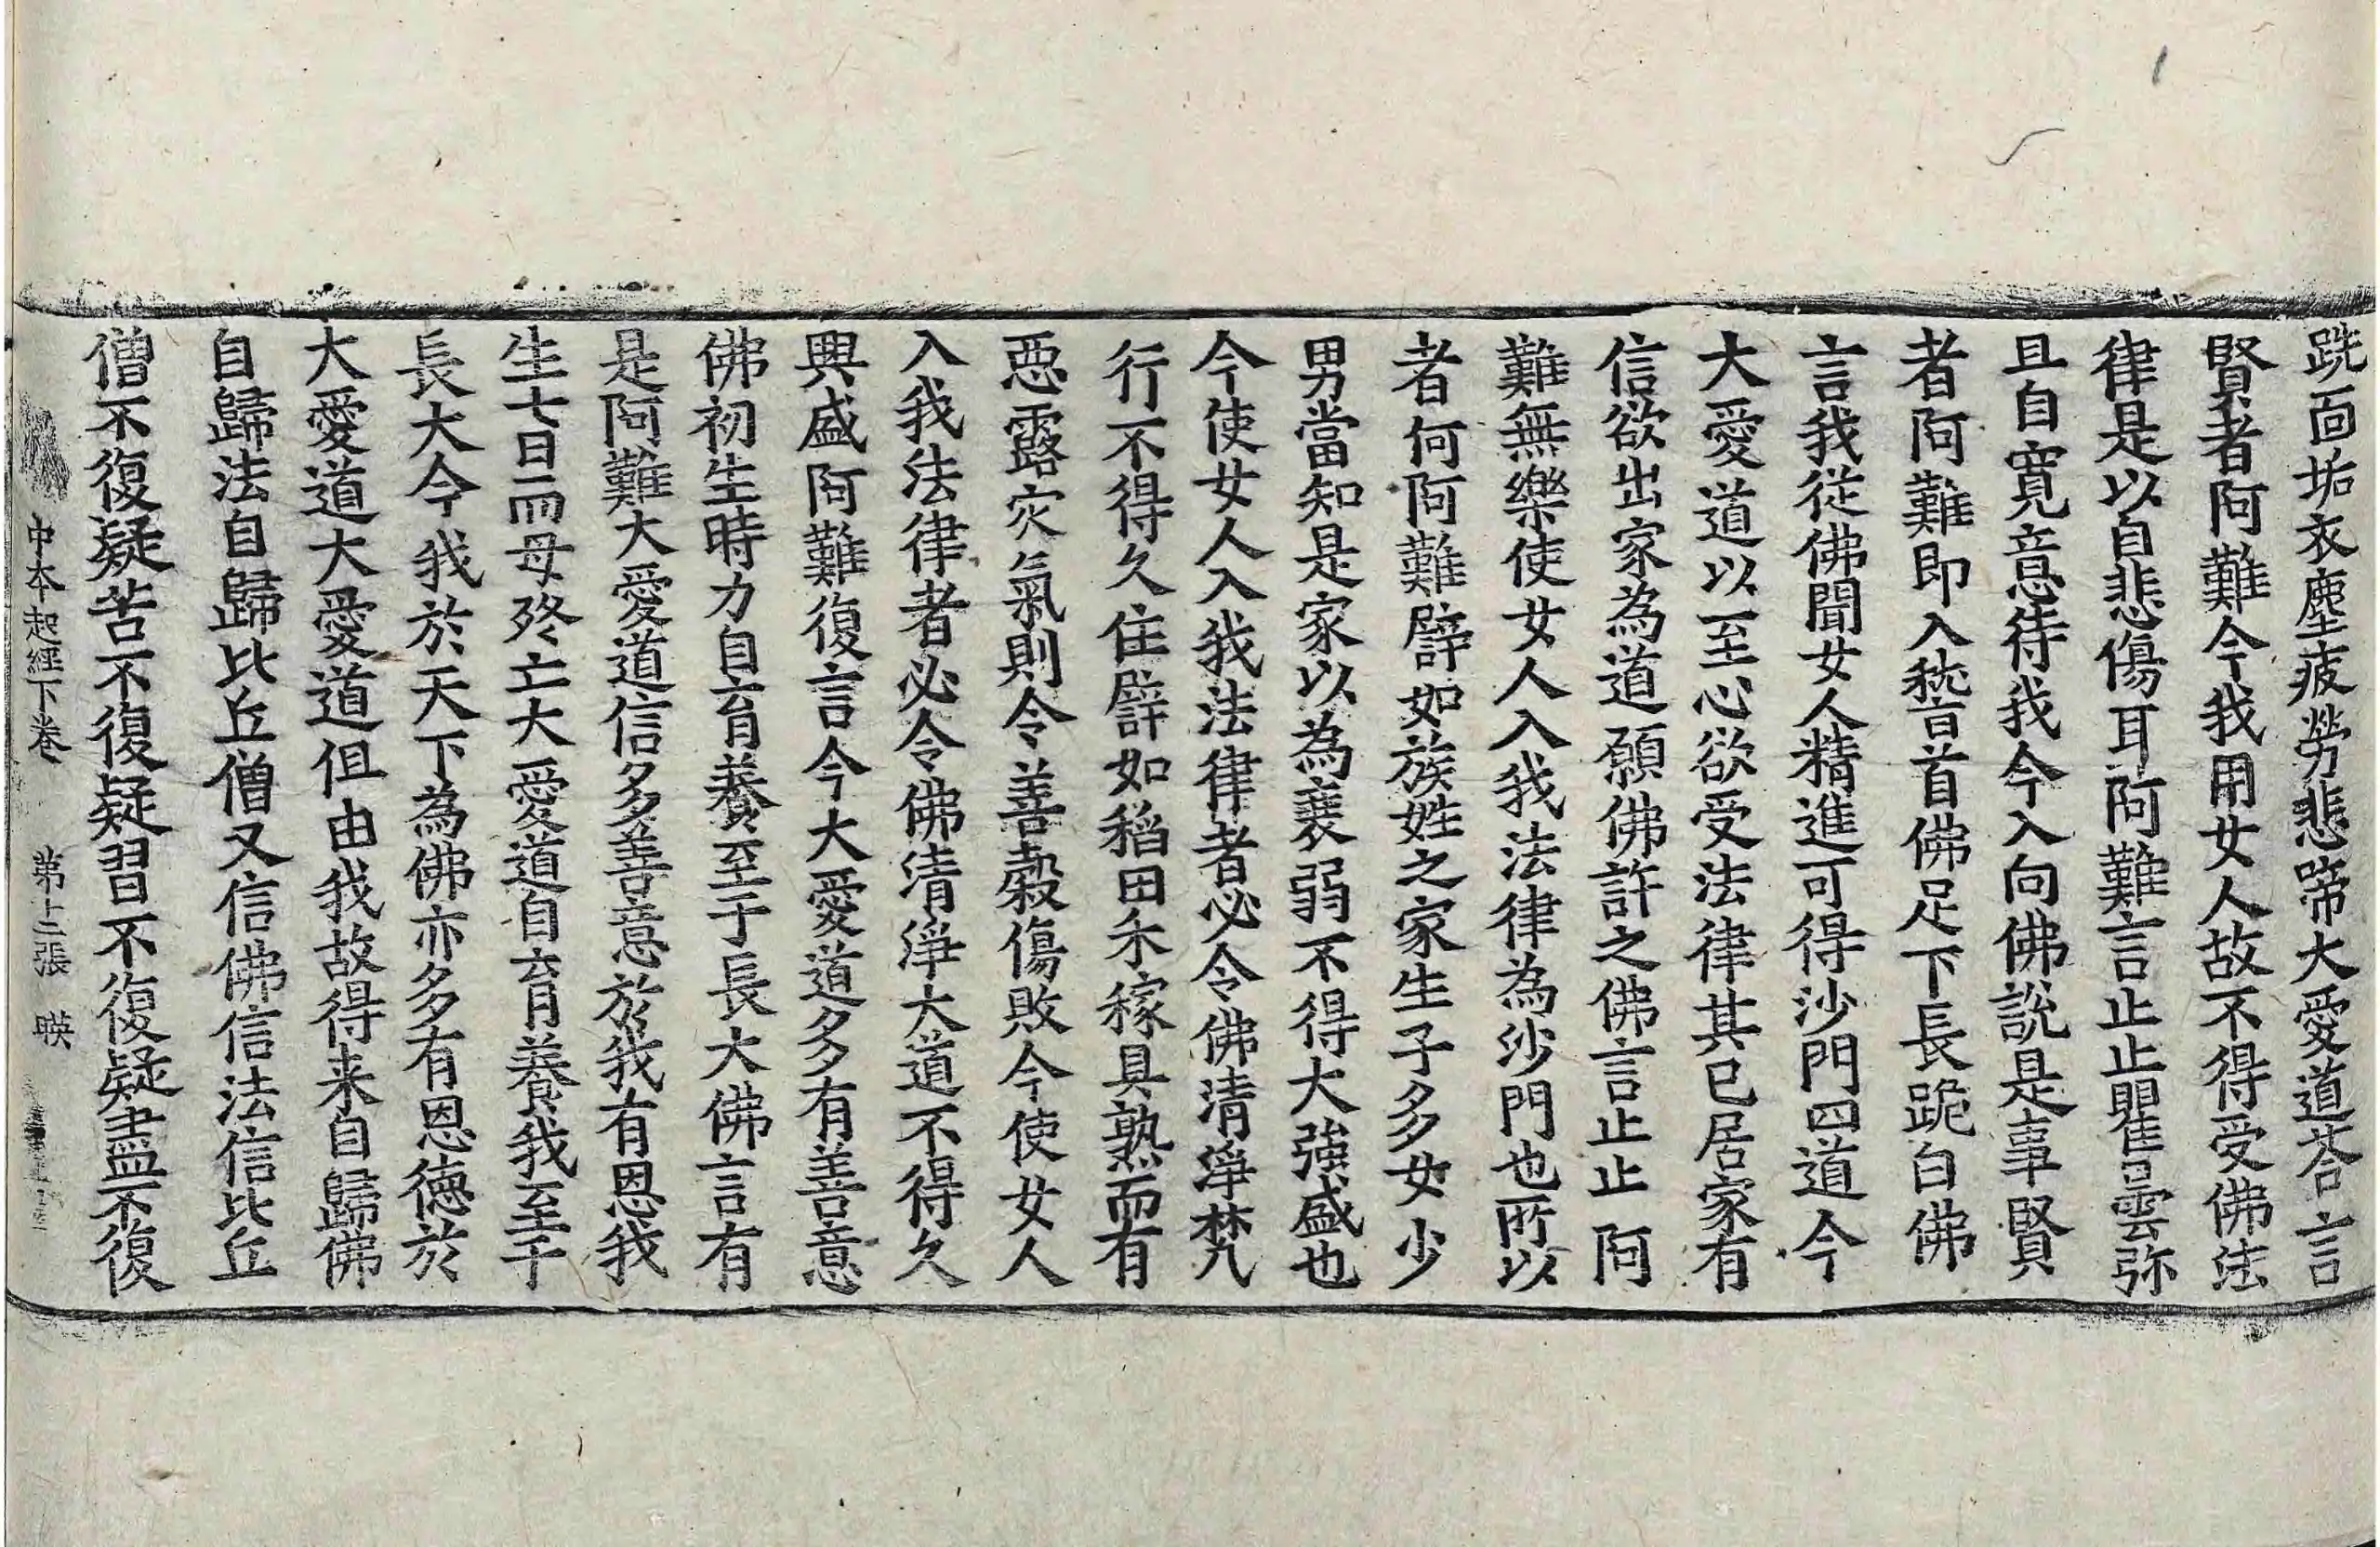 跣面垢衣塵疲勞悲啼大愛道荅言
賢者阿難今我用女人故不得受佛法
律是以自悲傷耳阿難言止止瞿曇弥
且自寬意待我今入向佛說是事賢
者阿難即入嵇首佛足下長跪白佛
言我從佛聞女人精進可得沙門四道今
大愛道以至心欲受法律其已居家有
信欲出家為道願佛許之佛言止止阿
難無樂使女人入我法律為沙門也所以
者何阿難譬如族姓之家生子多女少
男當知是家以為衰弱不得大強盛也
今使女人入我法律者必令佛清淨梵
行不得久住譬如稻田禾稼具熟而有
惡露灾氣則令善穀傷敗今使女人
入我法律者必令佛清淨大道不得久
興盛阿難復言今大愛道多有善意
佛初生時力自育養至于長大佛言有
是阿難大愛道信多善意於我有恩我
生七日而母終亡大愛道自育養我至于
長大今我於天下為佛亦多有恩德於
大愛道大愛道但由我故得来自歸佛
自歸法自歸比丘僧又信佛信法信比丘
僧不復疑苦不復疑習不復疑盡不復
中本起經下卷　第十二張　暎